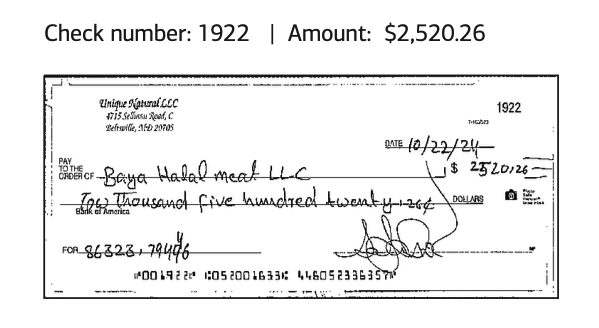 Check number: 1922 | Amount: $2,520.26
Unique Natural LLC
1922
4715 Sellman Road, C
Beltsville, MD 20705
DATE 10/22/24
PAY TO THE ORDER OF Baya Halal meat LLC $ 2520.26
Tow Thousand five hundred twenty 1.26¢ DOLLARS
Bank of America
FOR 86323, 79446
MP
⑈001922⑈ ⑆052001633⑆ 446052336357⑈